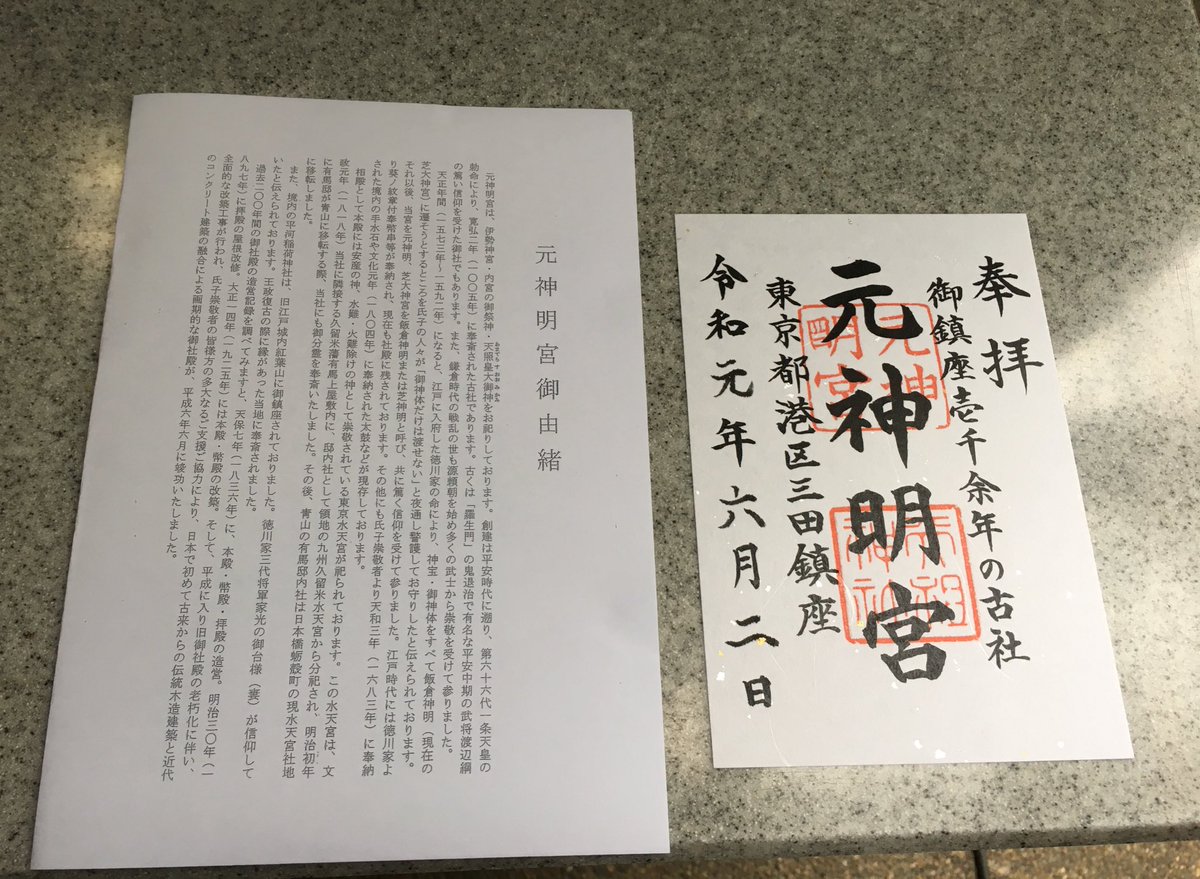 奉拝
御鎮座壱千余年の古社
元神明宮
元神
明宮
天祖
神社
東京都港区三田鎮座
令和元年六月二日
元神明宮御由緒
元神明宮は、伊勢神宮・内宮の御祭神・天照皇大御神をお祀りしております。創建は平安時代に遡り、第六十六代一条天皇の
勅命により、寛弘二年(一〇〇五年)に奉斎された古社であります。古くは「羅生門」の鬼退治で有名な平安中期の武将渡辺綱
の篤い信仰を受けた御社でもあります。また、鎌倉時代の戦乱の世も源頼朝を始め多くの武士から崇敬を受けて参りました。
天正年間(一五七三年~一五九二年)になると、江戸に入府した徳川家の命により、神宝・御神体をすべて飯倉神明(現在の
芝大神宮)に遷そうとするところを氏子の人々が「御神体だけは渡せない」と夜通し警護してお守りしたと伝えられております。
それ以後、当宮を元神明、芝大神宮を飯倉神明または芝神明と呼び、共に篤く信仰を受けて参りました。江戸時代には徳川家よ
り葵ノ紋章付奉幣串等が奉納され、現在も社殿に残されております。その他にも氏子崇敬者より天和三年(一六八三年)に奉納
された境内の手水石や文化元年(一八〇四年)に奉納された太鼓などが現存しております。
相殿として本殿には安産の神、水難・火難除けの神として崇敬されている東京水天宮が祀られております。この水天宮は、文
政元年(一八一八年)当社に隣接する久留米藩有馬上屋敷内に、邸内社として領地の九州久留米水天宮から分祀され、明治初年
に有馬邸が青山に移転する際、当社にも御分霊を奉斎いたしました。その後、青山の有馬邸内社は日本橋蛎殻町の現水天宮社地
に移転しました。
また、境内の平河稲荷神社は、旧江戸城内紅葉山に御鎮座されておりました。徳川家三代将軍家光の御台様(妻)が信仰して
いたと伝えられております。王政復古の際に縁があった当地に奉斎されました。
過去二〇〇年間の御社殿の造営記録を調べてみますと、天保七年(一八三六年)に、本殿・幣殿・拝殿の造営。明治三〇年(一
八九七年)に拝殿の屋根改修。大正一四年(一九二五年)には本殿・幣殿の改築。そして、平成に入り旧御社殿の老朽化に伴い、
全面的な改築工事が行われ、氏子崇敬者の皆様方の多大なるご支援ご協力により、日本で初めて古来からの伝統木造建築と近代
のコンクリート建築の融合による画期的な御社殿が、平成六年六月に竣功いたしました。